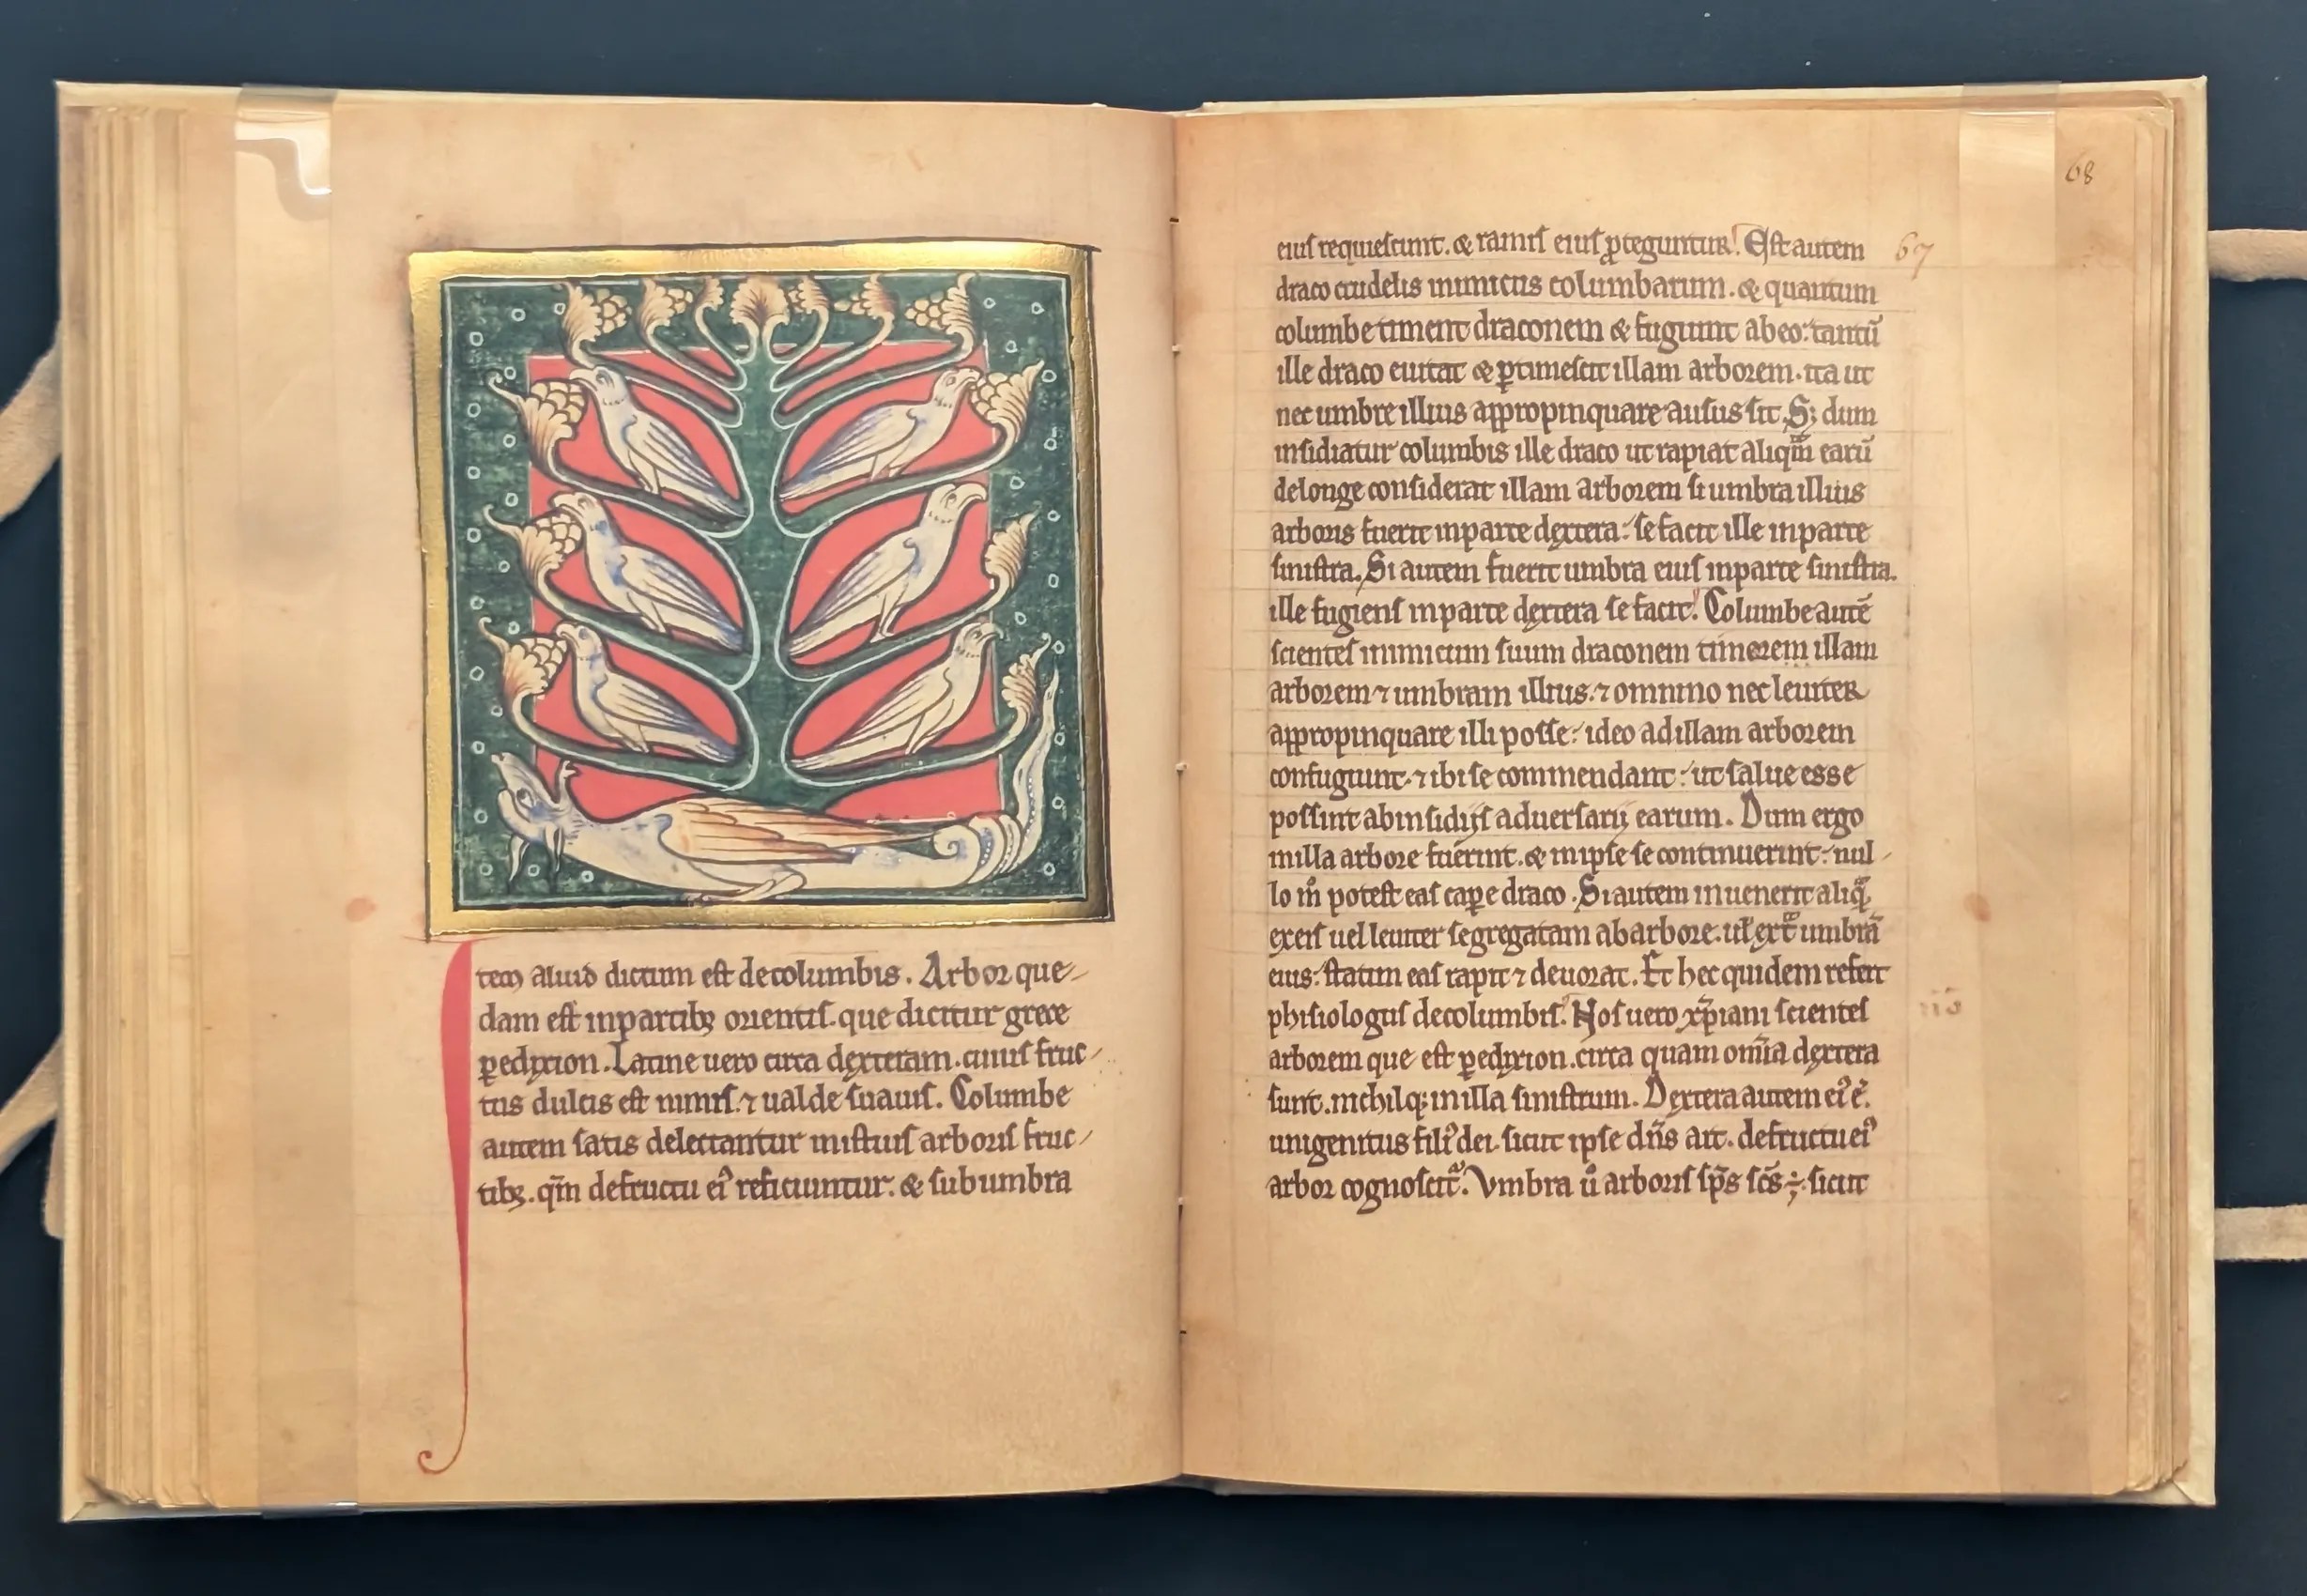 Item aliud dictum est decolumbis. Arbor que
dam est inpartibꝫ orientiſ. que dicitur grece
ꝑedixion. Latine uero circa dexteram. cuiuſ fruc
tus dulcis est nimiſ. ⁊ ualde ſuauiſ. Columbe
autem ſatis delectantur inistiuſ arboriſ fruc
tibꝫ. qm̄ defructu ei᷒ reficiuntur. & ſub umbra
68
eiuſ requieſcunt. & ramiſ eiuſ ꝓteguntur. Est autem
67
draco crudelis inimicus columbarum. & quantum
columbe timent draconem & fugiunt abeo: tantū
ille draco euitat & ꝑtimeſcit illam arborem. ita ut
nec umbre illius appropinquare auſus ſit. Sꝫ dum
inſidiatur columbis ille draco ut rapiat aliqᵃm earū
delonge conſiderat illam arborem. Si umbra illius
arboris fuerit inparte dextera: ſe facit ille inparte
ſinistra. Si autem fuerit umbra eiuſ inparte ſinistra.
ille fugienſ inparte dextera ſe facit. Columbe autē
ſcienteſ inimicum ſuum draconem timerem illam
arborem ⁊ umbram illius. ⁊ omnino nec leuiter
appropinquare illi poſſe: ideo ad illam arborem
confugiunt. ⁊ ibi ſe commendant: ut ſalue esse
poſſint ab inſidijſ aduerſarij earum. Dum ergo
inilla arbore fuerint. & inipſe ſe continuerint: nul
lo mͦ potest eaſ caꝑe draco. Si autem inuenerit aliqᵃ.
exeiſ uel leuiter ſegregatam ab arbore. ul̄ extᵃ umbrā
eius: statim eaſ rapit ⁊ deuorat. Et hec quidem refert
phiſiologuſ decolumbiſ. Noſ uero xp̄iani ſcienteſ
arborem que est ꝑedixion. circa quam om̄ia dextera
ſunt. nichilqꝫ inilla ſinistrum. Dextera autem ei᷒ ē.
unigenitus fili᷒ dei. ſicut ipſe dn̄s ait. defructu ei᷒
arbor cognoſcitᷓ. Vmbra uͦ arboriſ ſp̄s ſc̄s ÷. ſicut